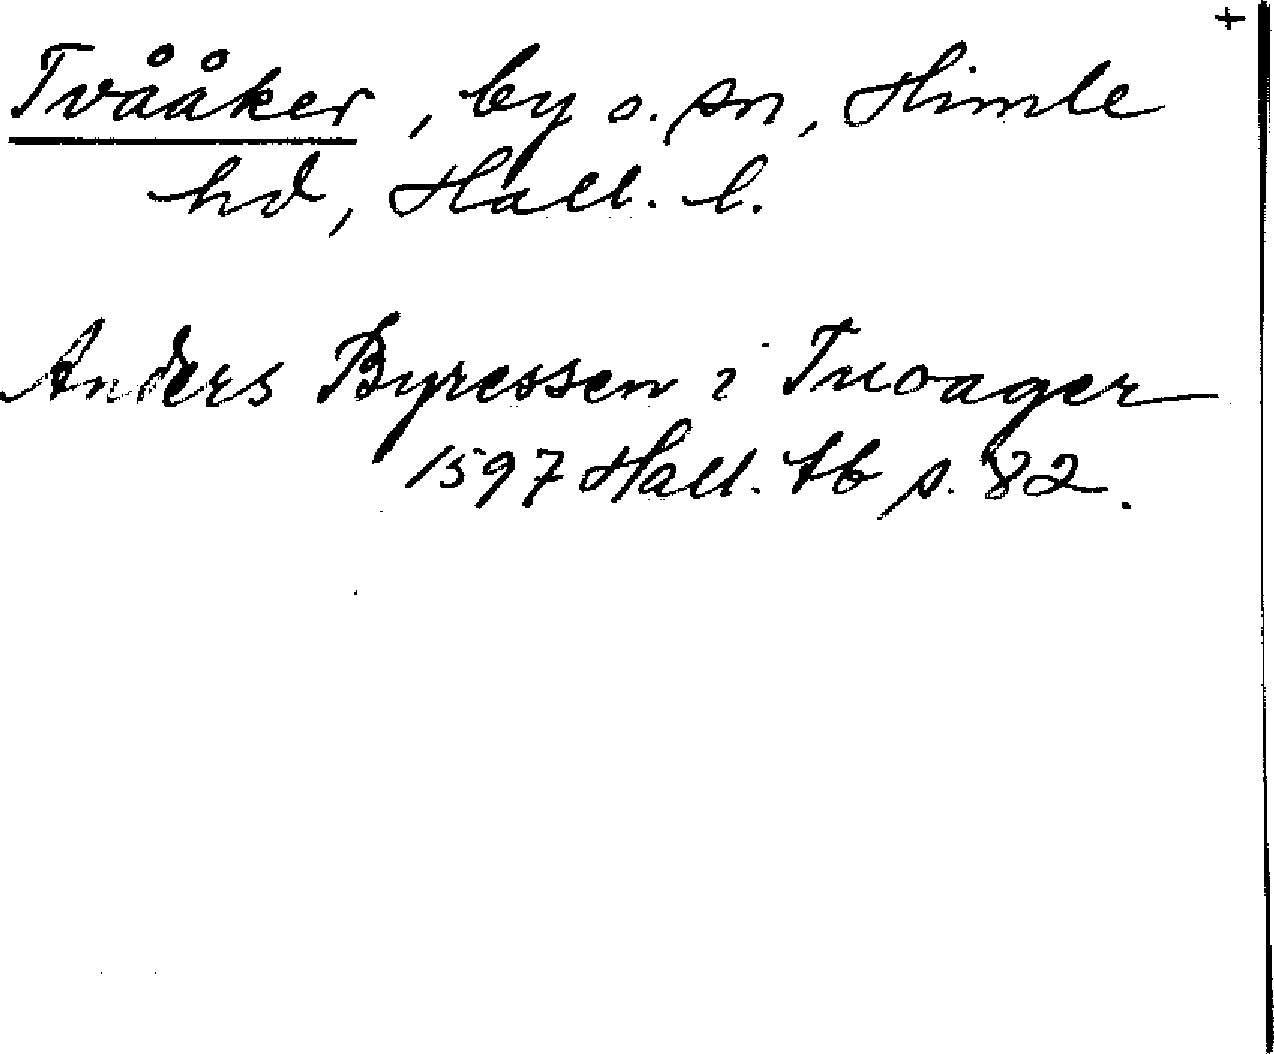 +
Tvååker, by o. sn, Himle
hd, Hall. l.
Anders Byressen i Tuoager
1597 Hall. tb s. 82.